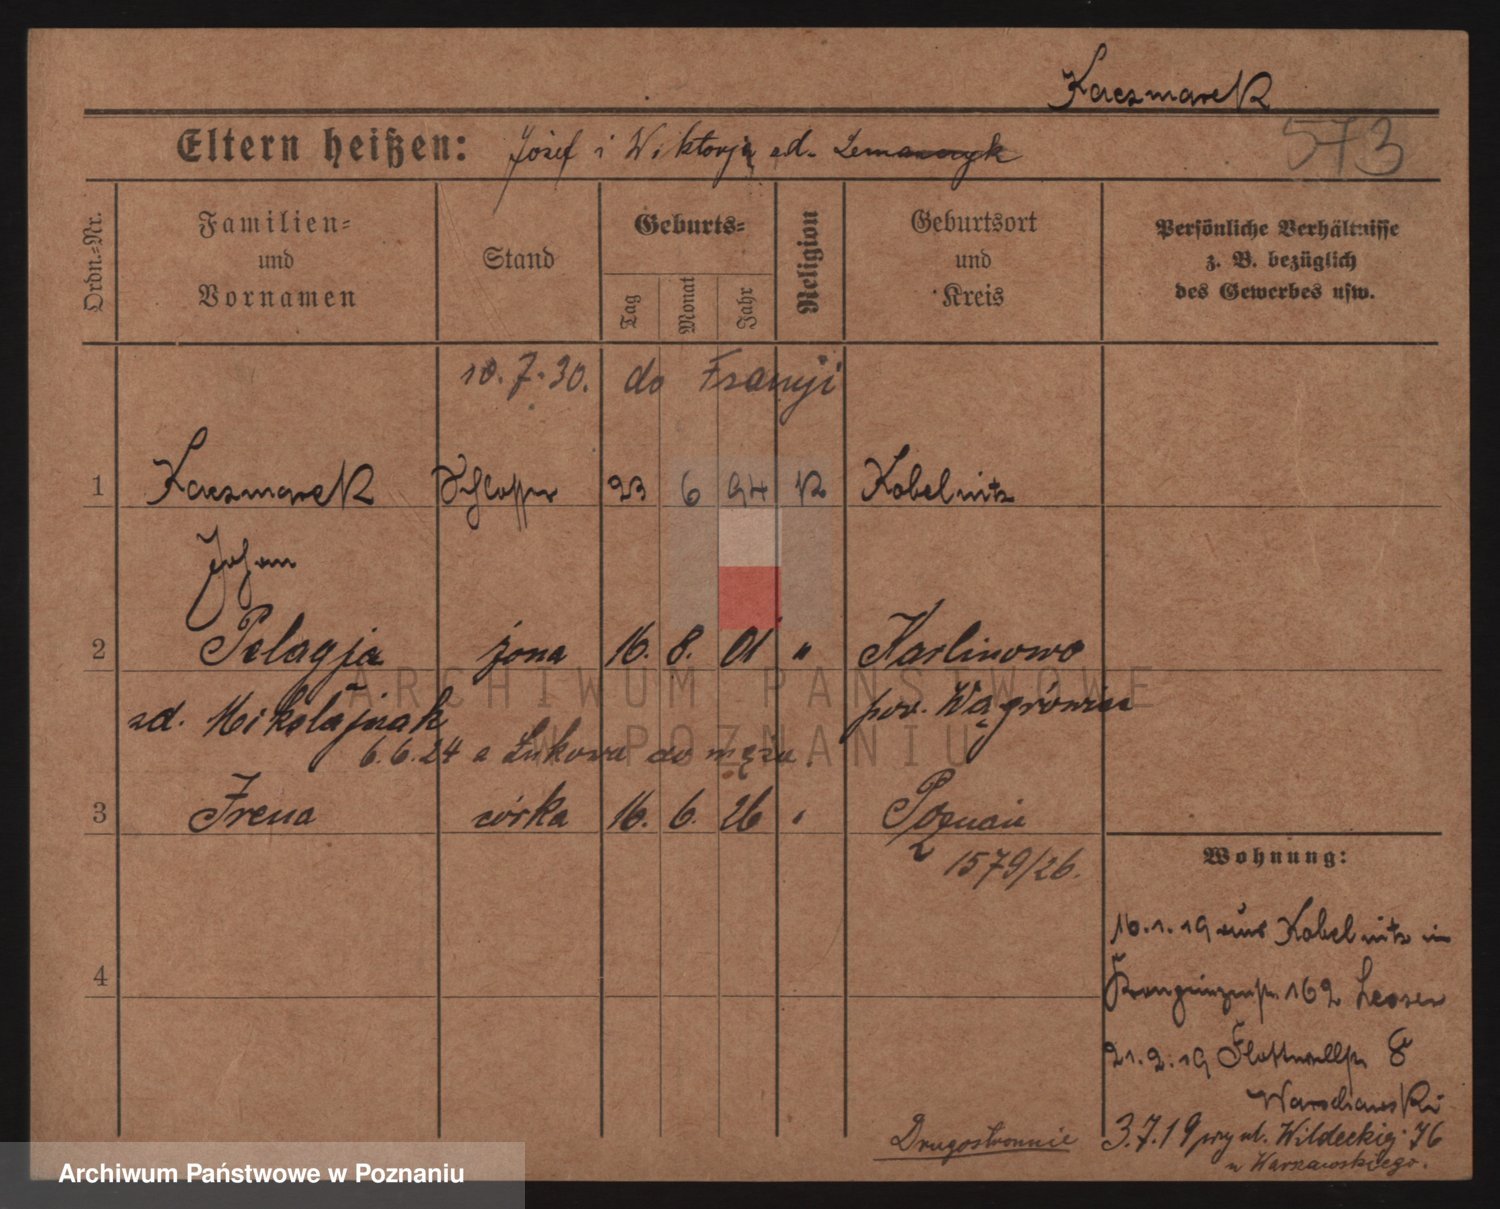 Kaczmarek
573
Eltern heißen: Józef i Wiktorja zd.
Ordn.-Nr.
Familien-
und
Vornamen
Stand
Geburts-
Tag
Monat
Jahr
Religion
Geburtsort
und
Kreis
Persönliche Verhältnisse
z. B. bezüglich
des Gewerbes usw.
10.7.30. do Francji
1 Kaczmarek Schlosser 23 6 94 K Kobelnitz
Johann
2 Pelagja żona 16. 8. 01 " Karlinowo
zd. Mikołajczak pow. Wągrowiec
6.6.24 z Lukowa do męża.
3 Irena córka 16. 6. 26 " Poznań
2 1579/26.
Wohnung:
16.1.19 aus Kobelnitz in
Kronprinzenstr. 162
4
21.2.19 Flottwellstr. 8
Warschawski
3.7.19 przy ul. Wildeckiej 76
u Warszawskiego.
Drugostronnie
ARCHIWUM PAŃSTWOWE
W POZNANIU
Archiwum Państwowe w Poznaniu